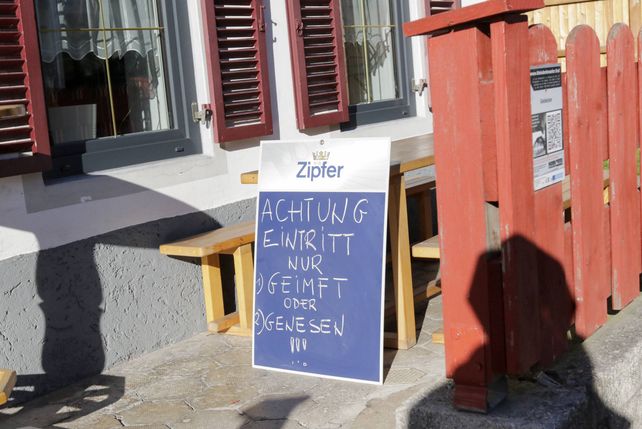 Zipfer
ACHTUNG
EINTRITT
NUR
1) GEIMFT
ODER
2) GENESEN
!!!